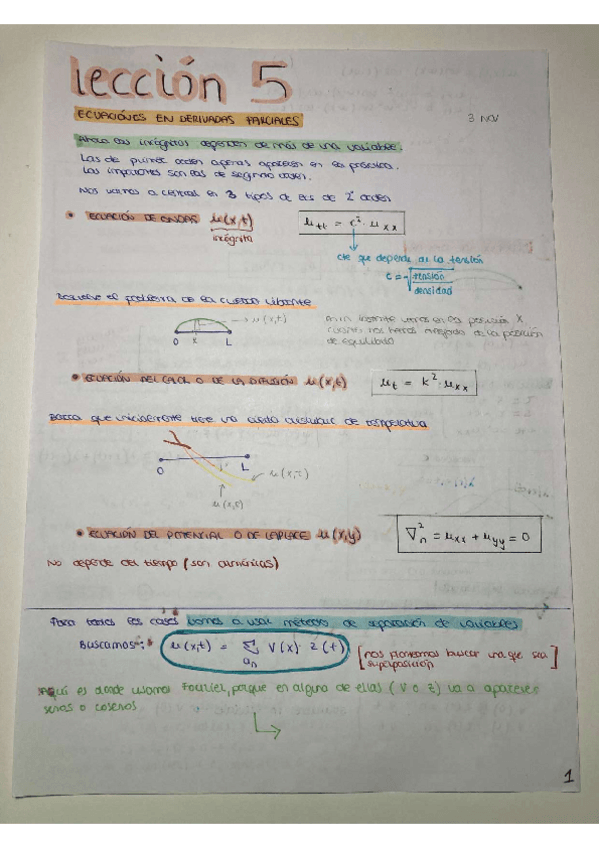 lección 5
ECUACIONES EN DERIVADAS PARCIALES
3 NOV
Ahora las incógnitas dependen de más de una variable.
Las de primer orden apenas aparecen en la práctica.
Las importantes son las de segundo orden.
Nos vamos a centrar en 3 tipos de ecs de 2º orden
• ECUACIÓN DE ONDAS u(x,t)
incógnita
u_tt = c²·u_xx
cte que depende de la tensión
c = √(tensión/densidad)
Resuelve el problema de la cuerda vibrante
u(x,t)
0 x L
en un instante vemos en la posición x
cuanto nos hemos alejado de la posición
de equilibrio
• ECUACIÓN DEL CALOR O DE LA DIFUSIÓN u(x,t)
u_t = k²·u_xx
Barra que inicialmente tiene una cierta distribuc de temperatura
0 L
u(x,t)
u(x,t)
• ECUACIÓN DEL POTENCIAL O DE LAPLACE u(x,y)
∇²_n = u_xx + u_yy = 0
No depende del tiempo (son armónicas)
Para todos los casos vamos a usar métodos de separación de variables
Buscamos: u(x,t) = Σ_an V(x)· Z(t)
[nos planteamos buscar una que sea superposición]
Aquí es donde usamos Fourier, porque en alguno de ellas (V o Z) va a aparecer
senos o cosenos
1